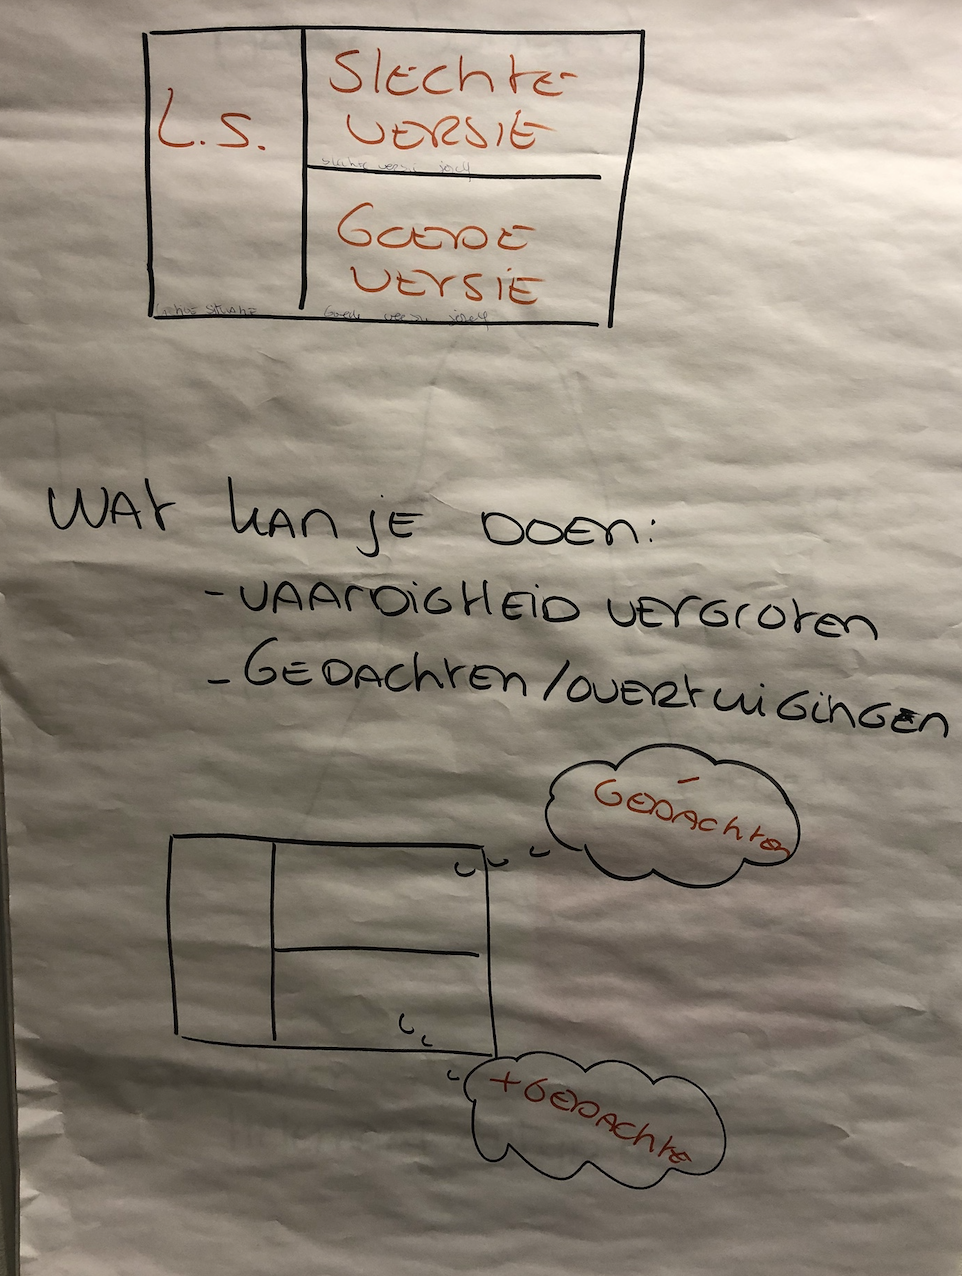 L.S.
Slechte
versie
slechte versie jezelf
Goede
versie
Goede versie jezelf
Wat kan je doen:
- vaardigheid vergroten
- Gedachten/overtuigingen
-
Gedachten
+ Gedachte